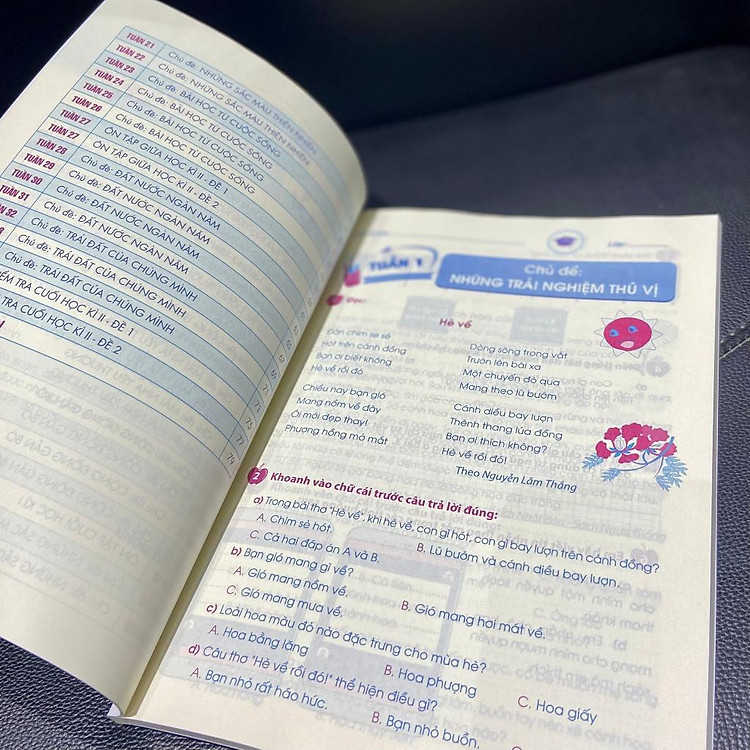 TUẦN 21 Chủ đề: NHỮNG SẮC MÀU THIÊN NHIÊN
TUẦN 22 Chủ đề: NHỮNG SẮC MÀU THIÊN NHIÊN
TUẦN 23 Chủ đề: BÀI HỌC TỪ CUỘC SỐNG
TUẦN 24 Chủ đề: BÀI HỌC TỪ CUỘC SỐNG
TUẦN 25 Chủ đề: BÀI HỌC TỪ CUỘC SỐNG
TUẦN 26 Chủ đề: BÀI HỌC TỪ CUỘC SỐNG
TUẦN 27 ÔN TẬP GIỮA HỌC KÌ II - ĐỀ 1
TUẦN 27 ÔN TẬP GIỮA HỌC KÌ II - ĐỀ 2
TUẦN 28 Chủ đề: ĐẤT NƯỚC NGÀN NĂM
TUẦN 29 Chủ đề: ĐẤT NƯỚC NGÀN NĂM
TUẦN 30 Chủ đề: ĐẤT NƯỚC NGÀN NĂM
TUẦN 31 Chủ đề: TRÁI ĐẤT CỦA CHÚNG MÌNH
32 Chủ đề: TRÁI ĐẤT CỦA CHÚNG MÌNH
Chủ đề: TRÁI ĐẤT CỦA CHÚNG MÌNH
TRA CUỐI HỌC KÌ II - ĐỀ 1
TRA CUỐI HỌC KÌ II - ĐỀ 2
71
73
75
77
79
Lớp
TUẦN 1
Chủ đề:
NHỮNG TRẢI NGHIỆM THÚ VỊ
Đọc:
Hè về
Đàn chim se sẻ
Hót trên cánh đồng
Bạn ơi biết không
Hè về rồi đó
Chiều nay bạn gió
Mang nồm về đây
Ôi mới đẹp thay!
Phượng hồng mở mắt
Dòng sông trong vắt
Trườn lên bãi xa
Một chuyến đò qua
Mang theo lũ bướm
Cánh diều bay lượn
Thênh thang lúa đồng
Bạn ơi thích không?
Hè về rồi đó!
Theo Nguyễn Lãm Thắng
2 Khoanh vào chữ cái trước câu trả lời đúng:
a) Trong bài thơ "Hè về", khi hè về, con gì hót, con gì bay lượn trên cánh đồng?
A. Chim sẻ hót. B. Lũ bướm và cánh diều bay lượn.
C. Cả hai đáp án A và B.
b) Bạn gió mang gì về?
A. Gió mang nồm về. B. Gió mang hơi mát về.
C. Gió mang mưa về.
c) Loài hoa màu đỏ nào đặc trưng cho mùa hè?
A. Hoa bằng lăng B. Hoa phượng C. Hoa giấy
d) Câu thơ "Hè về rồi đó!" thể hiện điều gì?
A. Bạn nhỏ rất háo hức. B. Bạn nhỏ buồn.